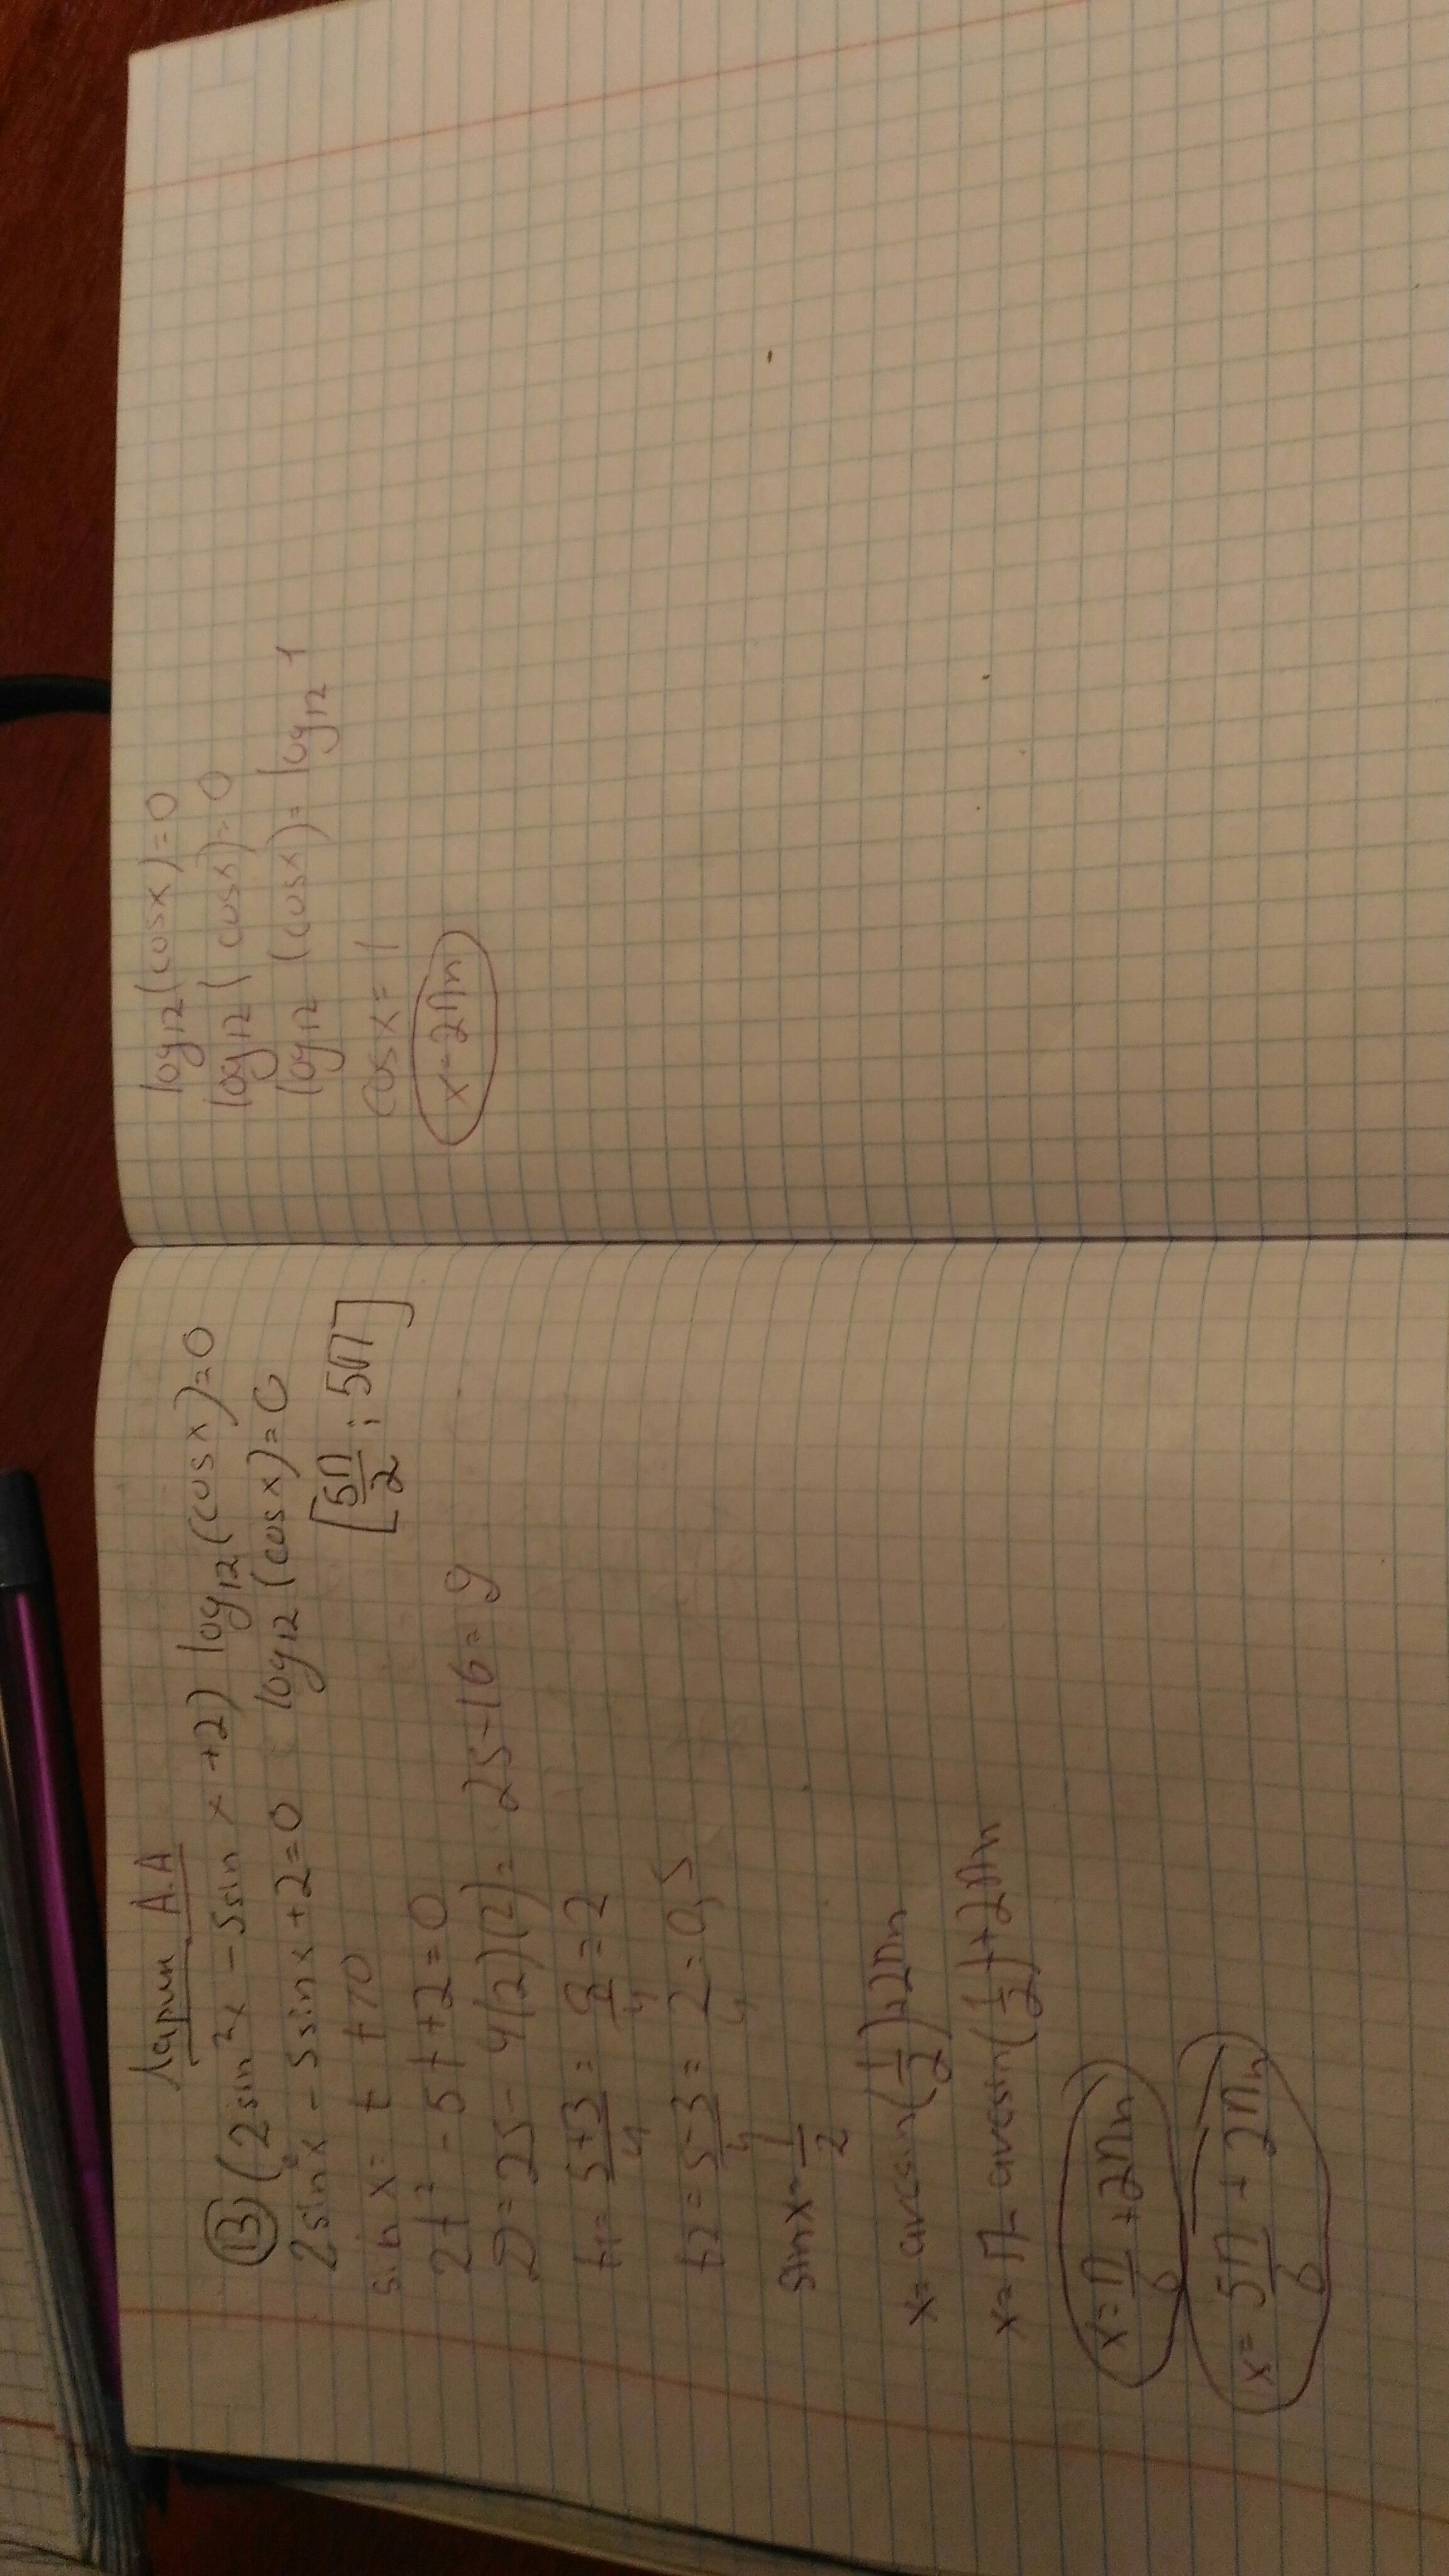 Ларин А.А
13) (2sin²x - 5sin x +2) log₁₂(cos x)=0
2sin²x - 5sinx+2=0 log₁₂(cos x)=0
[5π/2; 5π]
sin x = t t>0
2t² - 5t+2=0
D=25-4(2)(2)= 25-16=9
t1= 5+3/4 = 8/4=2
t2= 5-3/4 = 2/4=0,5
sinx=1/2
x= arcsin(1/2)+2πn
x= π- arcsin(1/2)+2πn
x=π/6+2πn
x= 5π/6 + 2πn
log₁₂(cosx)=0
log₁₂(cosx)=0
log₁₂ (cosx)= log₁₂ 1
cos x = 1
x=2πn